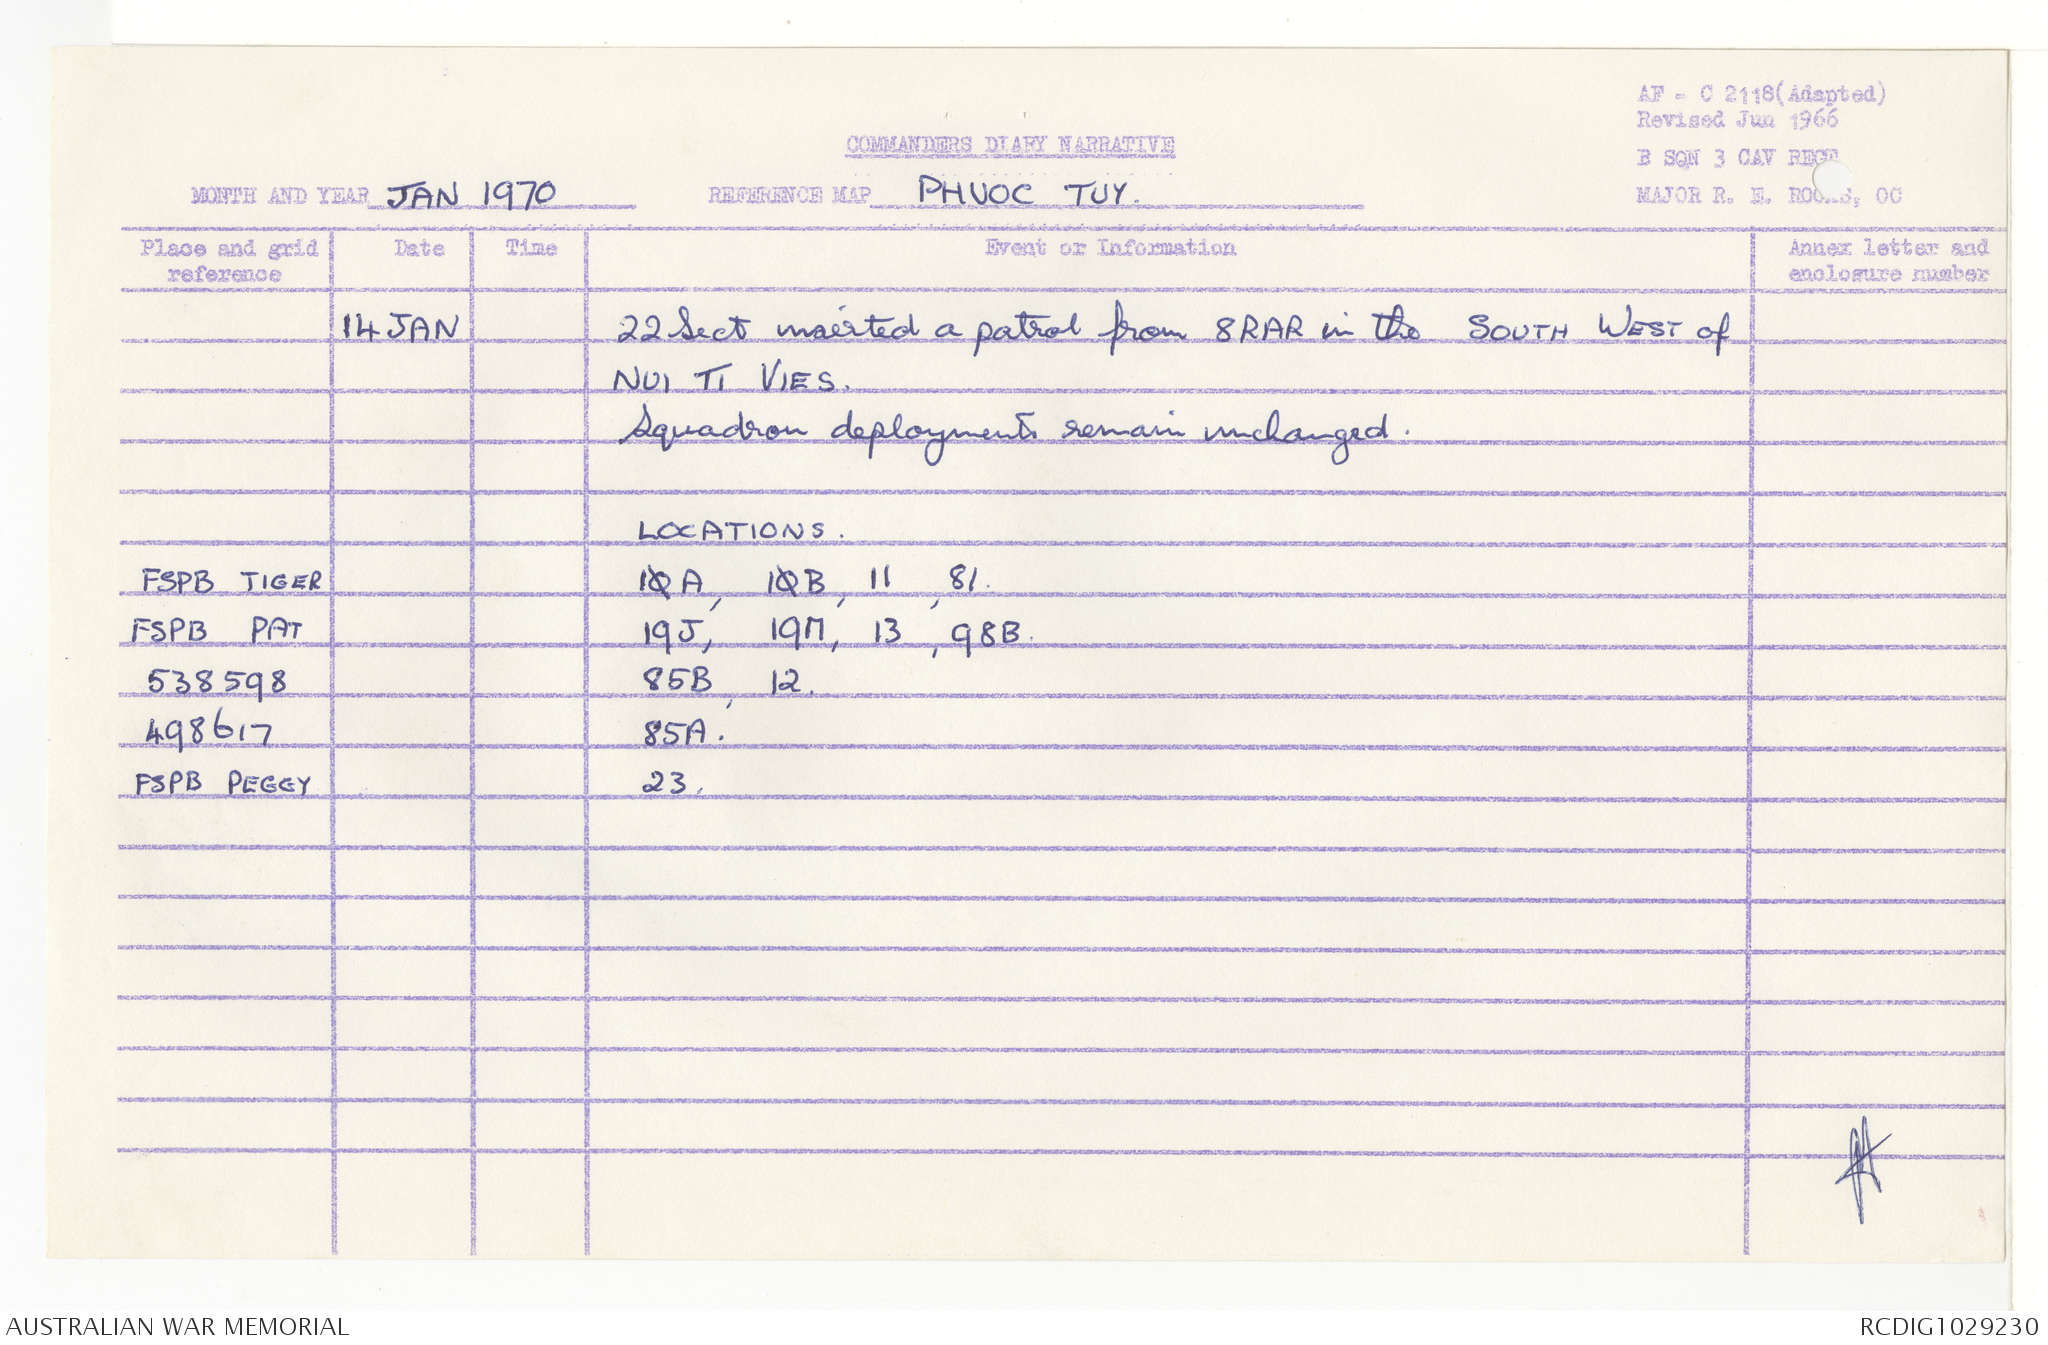 AF - C 2118(Adapted)
Revised Jun 1966
B SQN 3 CAV REGT
MAJOR R. E. , OC
COMMANDERS DIARY NARRATIVE
MONTH AND YEAR JAN 1970 REFERENCE MAP PHUOC TUY.
Place and grid reference Date Time Event or Information Annex letter and enclosure number
14 JAN 22 Sect inserted a patrol from 8RAR in the SOUTH WEST of
NUI TI VIES.
Squadron deployments remain unchanged.
LOCATIONS.
FSPB TIGER 10A, 10B, 11, 81.
FSPB PAT 19J, 19M, 13, 98B.
538598 85B, 12.
498617 85A.
FSPB PEGGY 23.
AUSTRALIAN WAR MEMORIAL RCDIG1029230